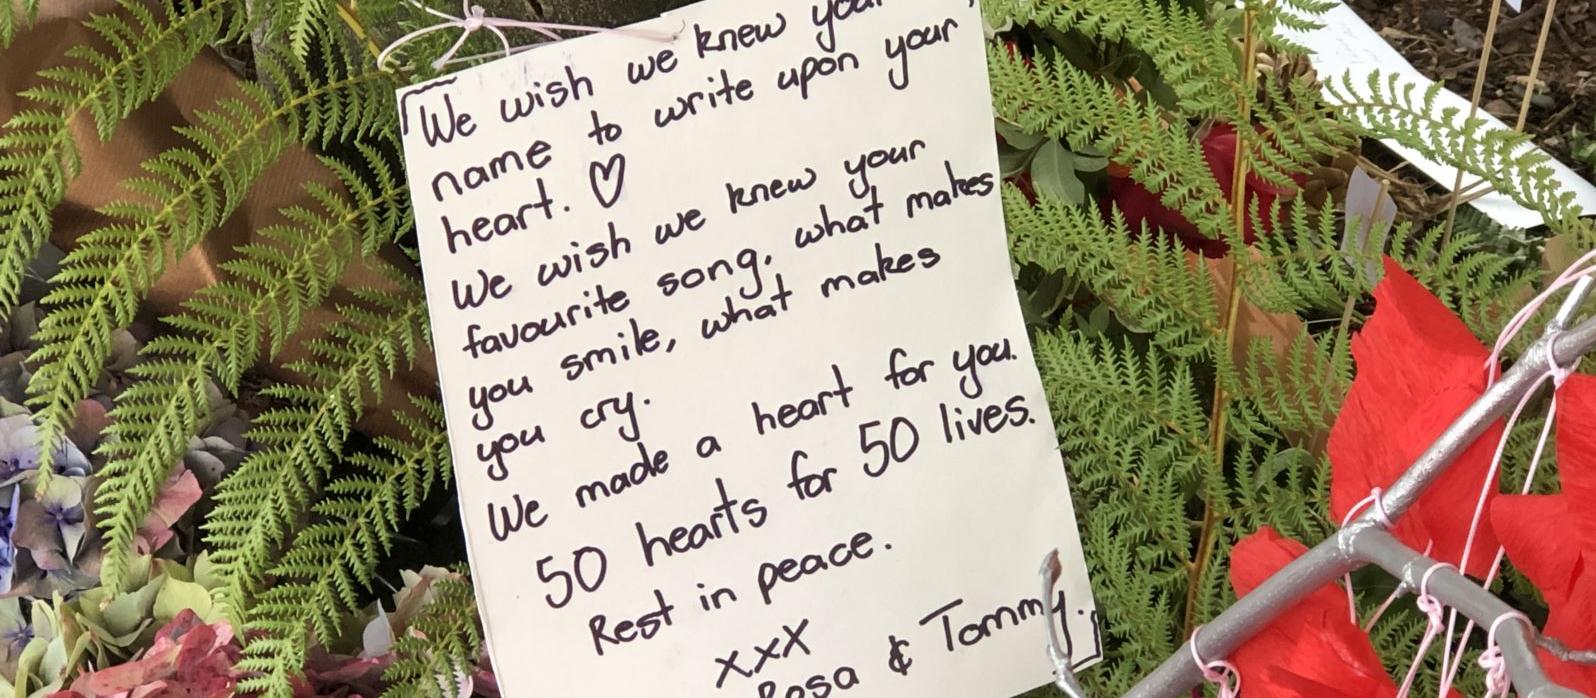 We wish we knew your
name to write upon your
heart. ♡
We wish we knew your
favourite song, what makes
you smile, what makes
you cry.
We made a heart for you.
50 hearts for 50 lives.
Rest in peace.
xxx
Rosa & Tommy.